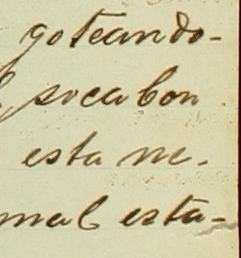 goteando-
socabon
esta ne-
mal esta-